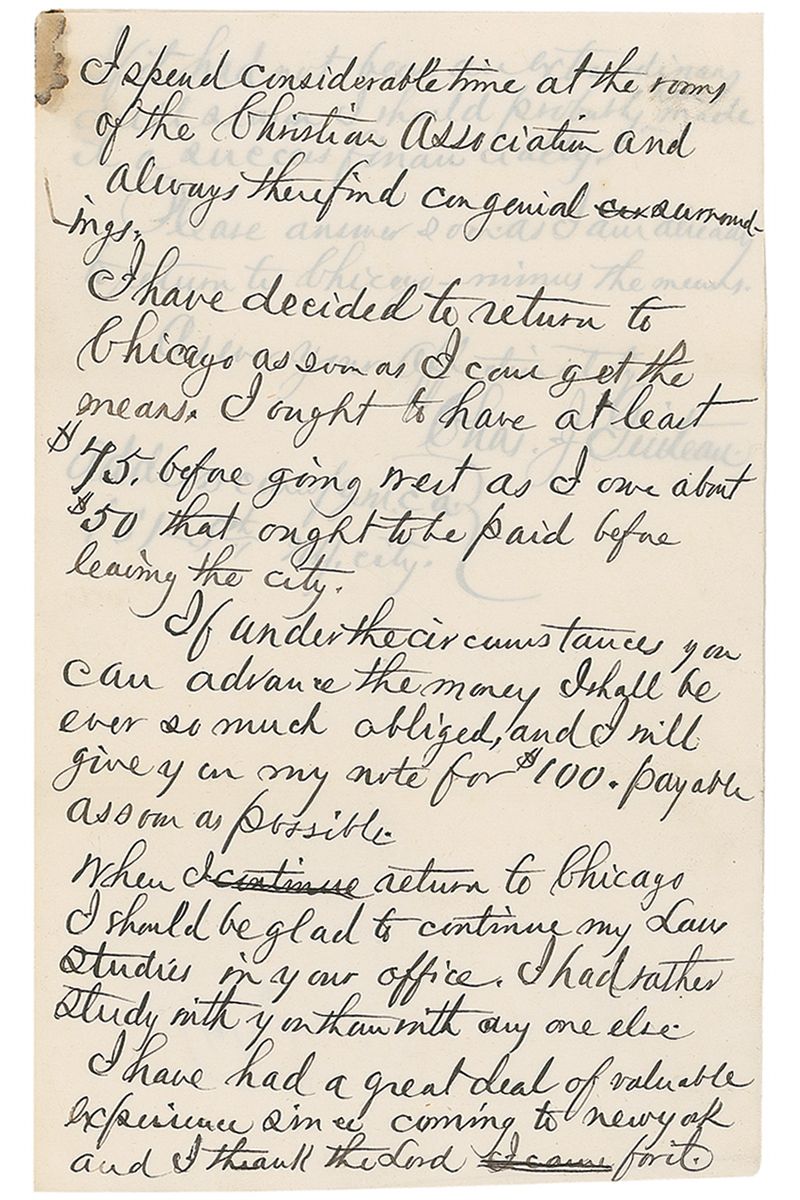 I spend considerable time at the rooms
of the Christian Association and
always there find congenial surround-
ings.
I have decided to return to
Chicago as soon as I can get the
means. I ought to have at least
$75. before going west as I owe about
$50 that ought to be paid before
leaving the city.
If under the circumstances you
can advance the money I shall be
ever so much obliged, and I will
give you my note for $100. payable
as soon as possible.
When I continue return to Chicago
I should be glad to continue my Law
Studies in your office. I had rather
study with you than with any one else
I have had a great deal of valuable
experience since coming to new york
and I thank the Lord I came for it.